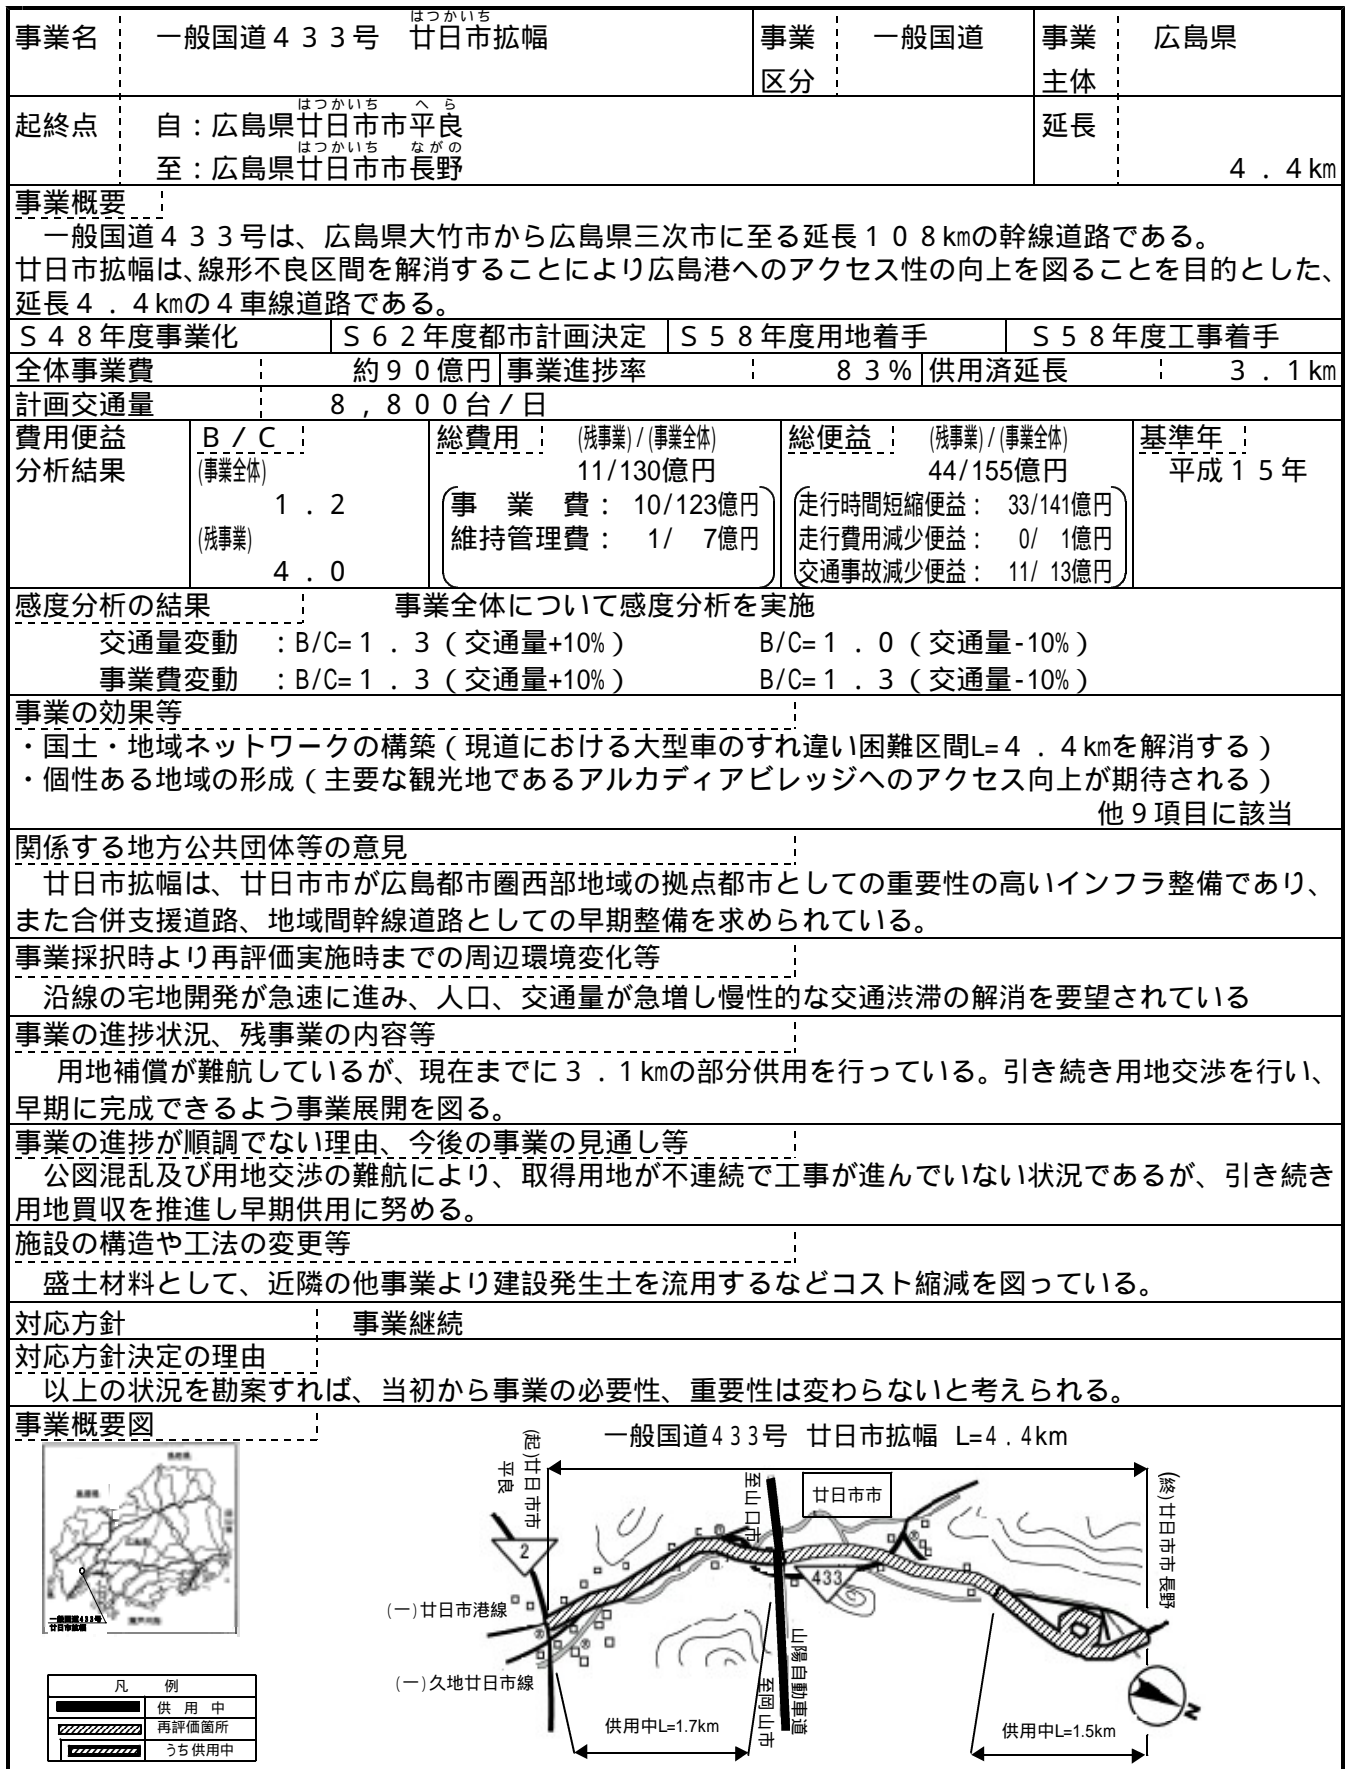 事業名 一般国道４３３号 廿日市拡幅 事業 一般国道 事業 広島県
はつかいち
区分 主体
起終点 自：広島県廿日市市平良 延長
はつかいち へら
至：広島県廿日市市長野 ４．４㎞
はつかいち ながの
事業概要
一般国道４３３号は、広島県大竹市から広島県三次市に至る延長１０８㎞の幹線道路である。
廿日市拡幅は、線形不良区間を解消することにより広島港へのアクセス性の向上を図ることを目的とした、
延長４．４㎞の４車線道路である。
Ｓ４８年度事業化 Ｓ６２年度都市計画決定 Ｓ５８年度用地着手 Ｓ５８年度工事着手
全体事業費 約９０億円 事業進捗率 ８３％ 供用済延長 ３．１㎞
計画交通量 ８，８００台／日
費用便益 Ｂ／Ｃ 総費用 (残事業)/(事業全体) 総便益 (残事業)/(事業全体) 基準年
分析結果 (事業全体) 11/130億円 44/155億円 平成１５年
１．２ 事業費： 10/123億円 走行時間短縮便益： 33/141億円
(残事業) 維持管理費： 1/ 7億円 走行費用減少便益： 0/ 1億円
４．０ 交通事故減少便益： 11/ 13億円
感度分析の結果 事業全体について感度分析を実施
交通量変動 ：B/C=１．３（交通量+10%） B/C=１．０（交通量-10%）
事業費変動 ：B/C=１．３（交通量+10%） B/C=１．３（交通量-10%）
事業の効果等
・国土・地域ネットワークの構築（現道における大型車のすれ違い困難区間L=４．４㎞を解消する）
・個性ある地域の形成（主要な観光地であるアルカディアビレッジへのアクセス向上が期待される）
他９項目に該当
関係する地方公共団体等の意見
廿日市拡幅は、廿日市市が広島都市圏西部地域の拠点都市としての重要性の高いインフラ整備であり、
また合併支援道路、地域間幹線道路としての早期整備を求められている。
事業採択時より再評価実施時までの周辺環境変化等
沿線の宅地開発が急速に進み、人口、交通量が急増し慢性的な交通渋滞の解消を要望されている
事業の進捗状況、残事業の内容等
用地補償が難航しているが、現在までに３．１㎞の部分供用を行っている。引き続き用地交渉を行い、
早期に完成できるよう事業展開を図る。
事業の進捗が順調でない理由、今後の事業の見通し等
公図混乱及び用地交渉の難航により、取得用地が不連続で工事が進んでいない状況であるが、引き続き
用地買収を推進し早期供用に努める。
施設の構造や工法の変更等
盛土材料として、近隣の他事業より建設発生土を流用するなどコスト縮減を図っている。
対応方針 事業継続
対応方針決定の理由
以上の状況を勘案すれば、当初から事業の必要性、重要性は変わらないと考えられる。
事業概要図
一般国道433号 廿日市拡幅 L=4.4km
(起)廿日市市
平良
至山口市
廿日市市
(終)廿日市市長野
2
433
(一)廿日市港線
(一)久地廿日市線
山陽自動車道
至岡山市
供用中L=1.7km
供用中L=1.5km
N
一般国道433号
廿日市拡幅
凡 例
供 用 中
再評価箇所
うち供用中